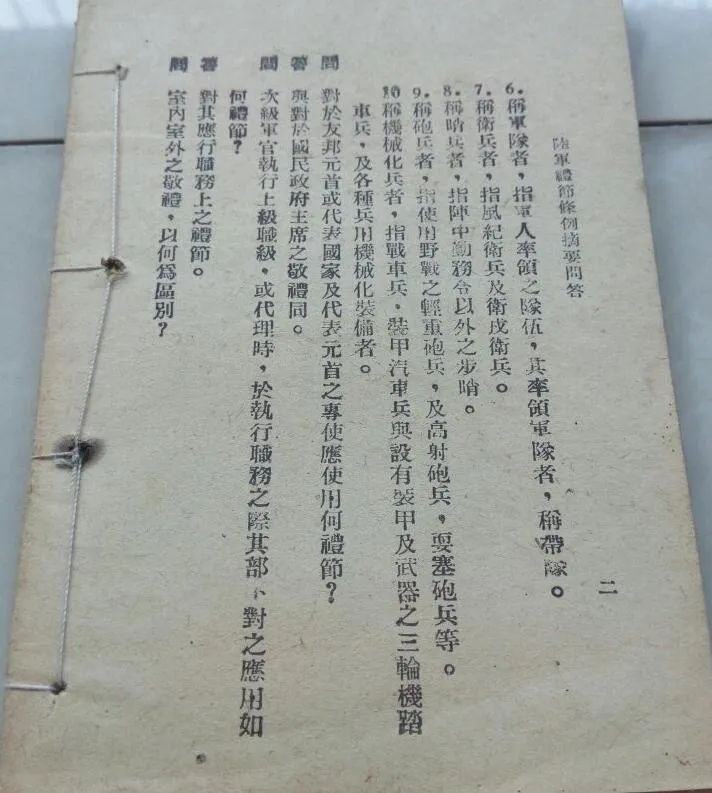 陸軍禮節條例摘要問答
二
6.稱軍隊者，指軍人率領之隊伍，其率領軍隊者，稱帶隊。
7.稱衛兵者，指風紀衛兵及衛戍衛兵。
8.稱哨兵者，指陣中勤務令以外之步哨。
9.稱砲兵者，指使用野戰之輕重砲兵，及高射砲兵，要塞砲兵等。
10稱機械化兵者，指戰車兵，裝甲汽車兵與設有裝甲及武器之三輪機踏
車兵，及各種兵用機械化裝備者。
問　對於友邦元首或代表國家及代表元首之專使應使用何禮節？
答　與對於國民政府主席之敬禮同。
問　次級軍官執行上級職級，或代理時，於執行職務之際其部下對之應用如
何禮節？
答　對其應行職務上之禮節。
問　室內室外之敬禮，以何為區別？